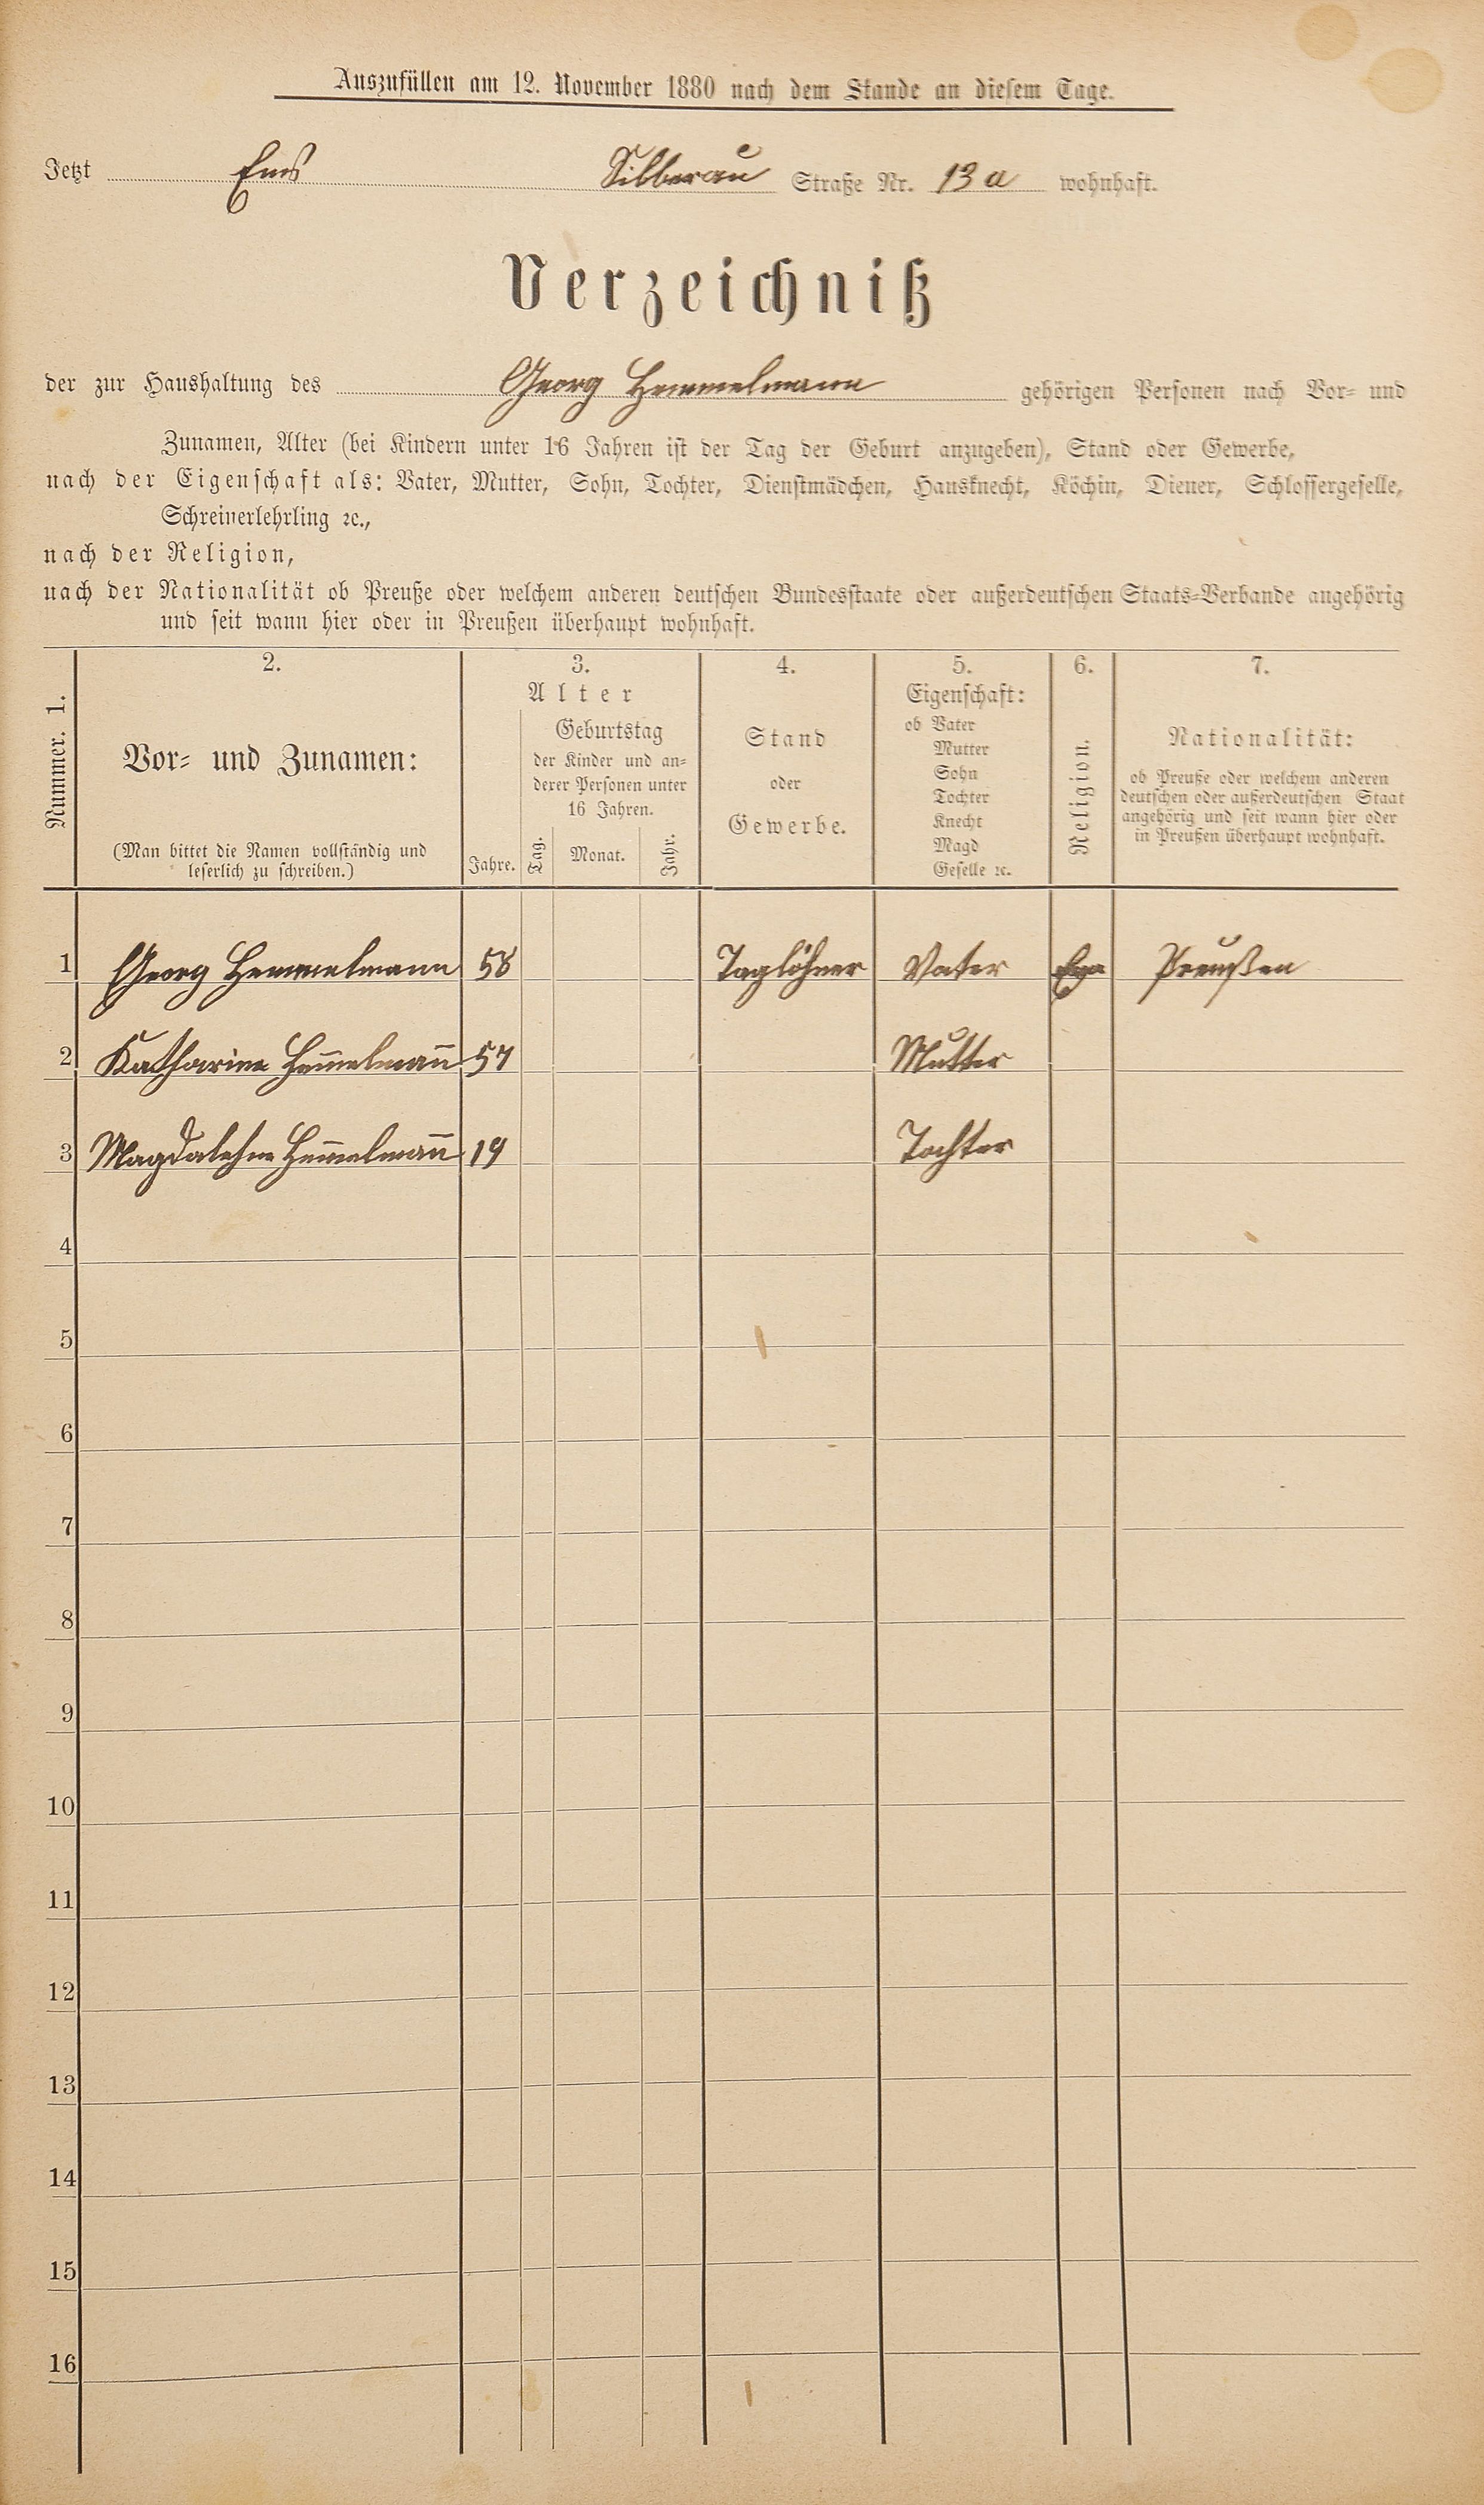 Auszufüllen am 12. November 1880 nach dem Stande an diesem Tage.
Jetzt Ems Silberau Straße Nr. 13 a wohnhaft.
Verzeichniß
der zur Haushaltung des Georg Hemmelmann gehörigen Personen nach Vor- und
Zunamen, Alter (bei Kindern unter 16 Jahren ist der Tag der Geburt anzugeben), Stand oder Gewerbe,
nach der Eigenschaft als: Vater, Mutter, Sohn, Tochter, Dienstmädchen, Hausknecht, Köchin, Diener, Schlossergeselle,
Schreinerlehrling ꝛc.,
nach der Religion,
nach der Nationalität ob Preuße oder welchem anderen deutschen Bundesstaate oder außerdeutschen Staats-Verbande angehörig
und seit wann hier oder in Preußen überhaupt wohnhaft.
Nummer. 1.
2.
Vor- und Zunamen:
(Man bittet die Namen vollständig und
leserlich zu schreiben.)
3.
Alter
Jahre.
Geburtstag
der Kinder und an-
derer Personen unter
16 Jahren.
Tag. Monat. Jahr.
4.
Stand
oder
Gewerbe.
5.
Eigenschaft:
ob Vater
Mutter
Sohn
Tochter
Knecht
Magd
Geselle ꝛc.
6.
Religion.
7.
Nationalität:
ob Preuße oder welchem anderen
deutschen oder außerdeutschen Staat
angehörig und seit wann hier oder
in Preußen überhaupt wohnhaft.
1 Georg Hemmelmann 58 Taglöhner Vater Eva Preußen
2 Katharina Hem̅elman̅ 57 Mutter
3 Magdalehne Hem̅elman̅ 19 Tochter
4
5
6
7
8
9
10
11
12
13
14
15
16